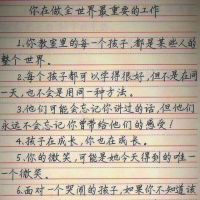 你在做全世界最重要的工作
1.你教室里的每一个孩子,都是某些人的
整个世界.
2.每个孩子都可以学得很好,但不是在同
一天,也不会是用同一种方法.
3.他们可能会忘记你讲过的话,但他们
永远不会忘记,你曾带给他们的感受!
4.孩子在成长,你也在成长.
5.你的微笑,可能是她今天得到的唯一
一个微笑.
6.面对一个哭闹的孩子,如果你不知道该